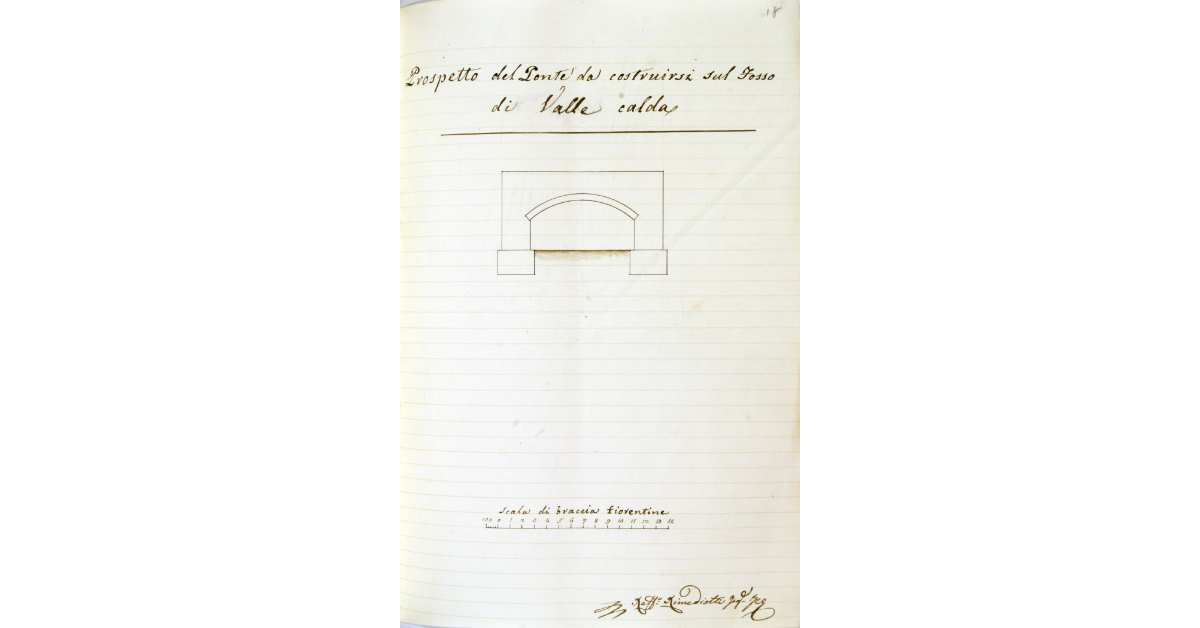 18
Prospetto del Ponte da costruirsi sul Fosso
di Valle calda
scala di braccia fiorentine
100 0 1 2 3 4 5 6 7 8 9 10 11 12 13 14
Raff.